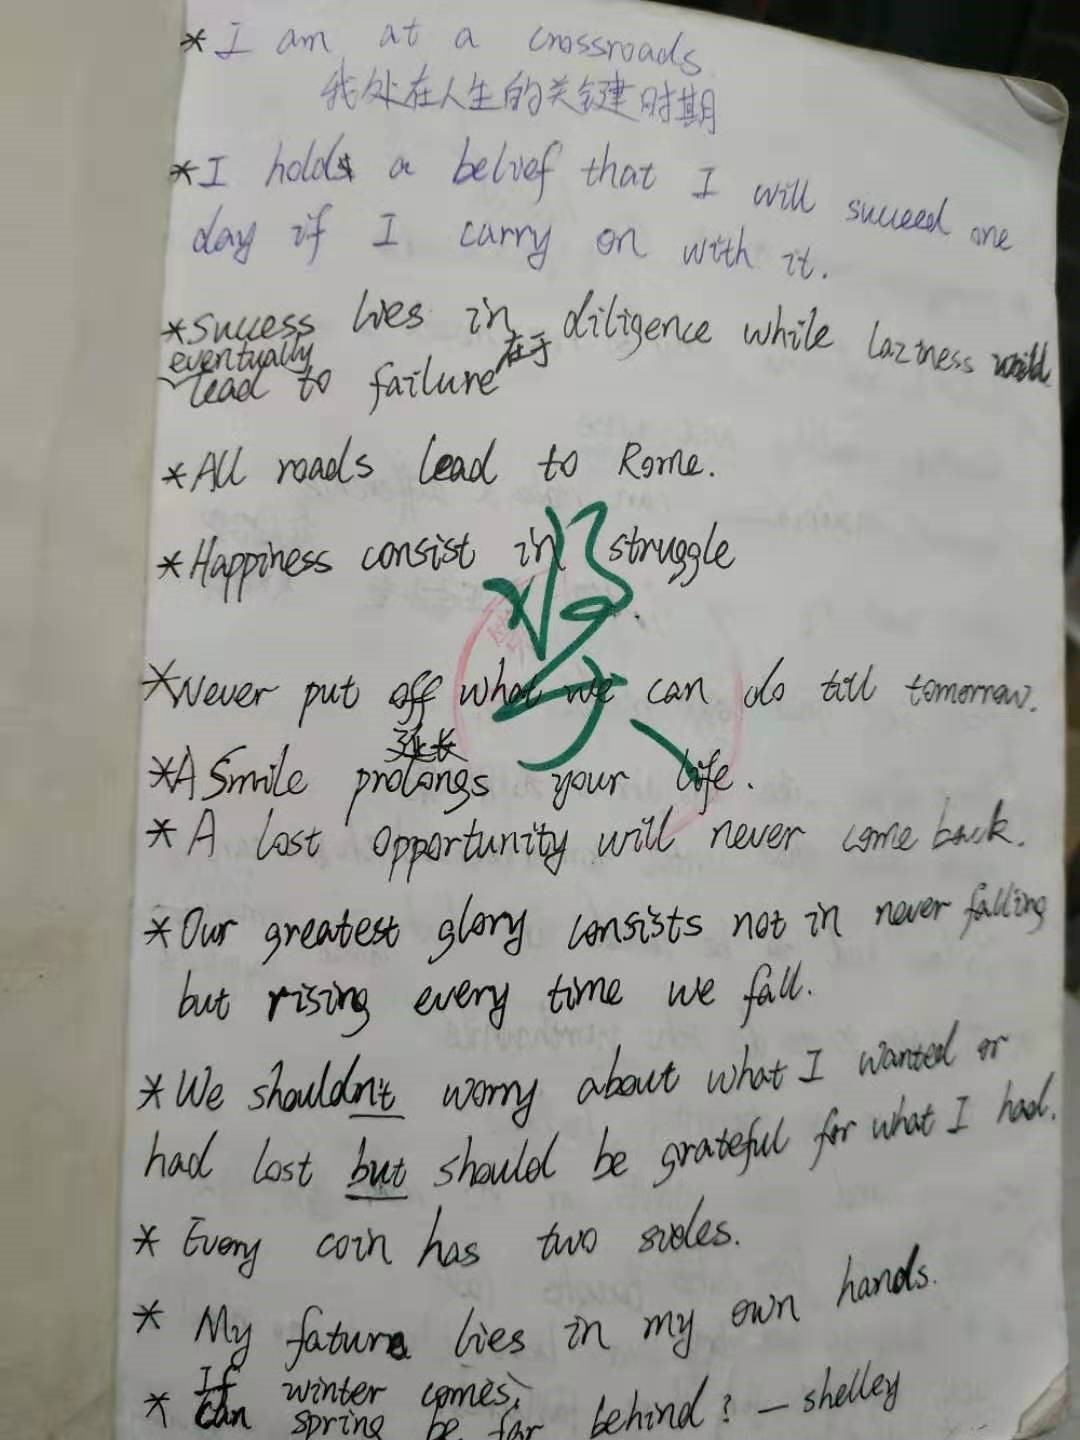 * I am at a crossroads
我处在人生的关键时期
* I hold a belief that I will succeed one
day if I carry on with it.
* Success lies in diligence while laziness will
在于
eventually
lead to failure
* All roads lead to Rome.
* Happiness consist in struggle
* Never put off what we can do till tomorrow.
延长
* A Smile prolongs your life.
* A lost opportunity will never come back.
* Our greatest glory consists not in never falling
but rising every time we fall.
* We shouldn't worry about what I wanted or
had lost but should be grateful for what I had.
* Every coin has two sides.
* My future lies in my own hands.
* If winter comes,
can spring be far behind? — shelley